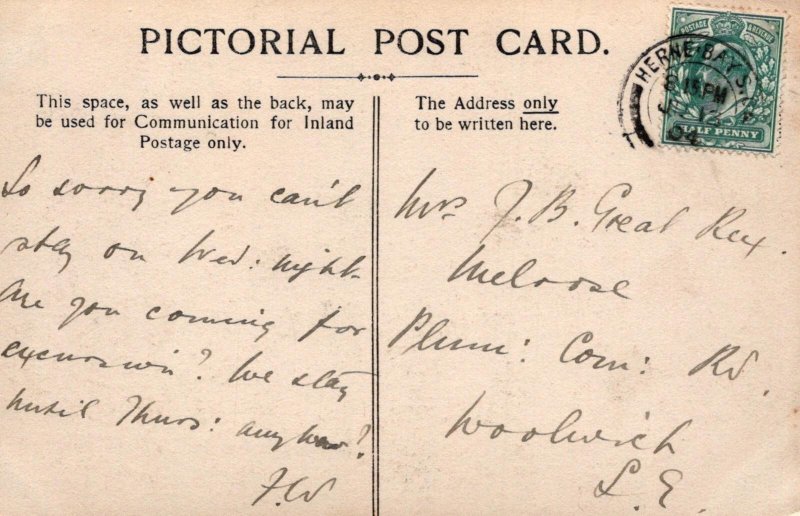 PICTORIAL POST CARD.
This space, as well as the back, may
be used for Communication for Inland
Postage only.
The Address only
to be written here.
POSTAGE & REVENUE
HALF PENNY
HERNE·BAY S.O.
8.15PM
12
04
So sorry you can't
stay on Wed: night.
Are you coming for
excursion? We stay
until Thurs: anyhow?
F.W
Mrs J. B. Great Rex.
Melrose
Plum: Com: Rd.
Woolwich
S. E.